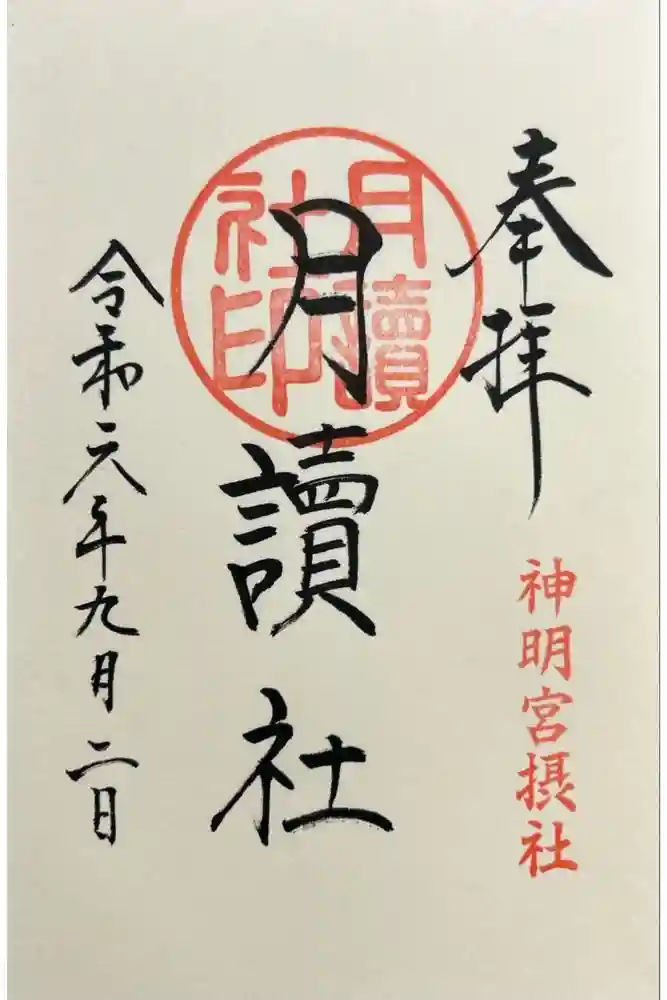 奉拝
神明宮摂社
月讀社
月讀
社印
令和六年九月二日